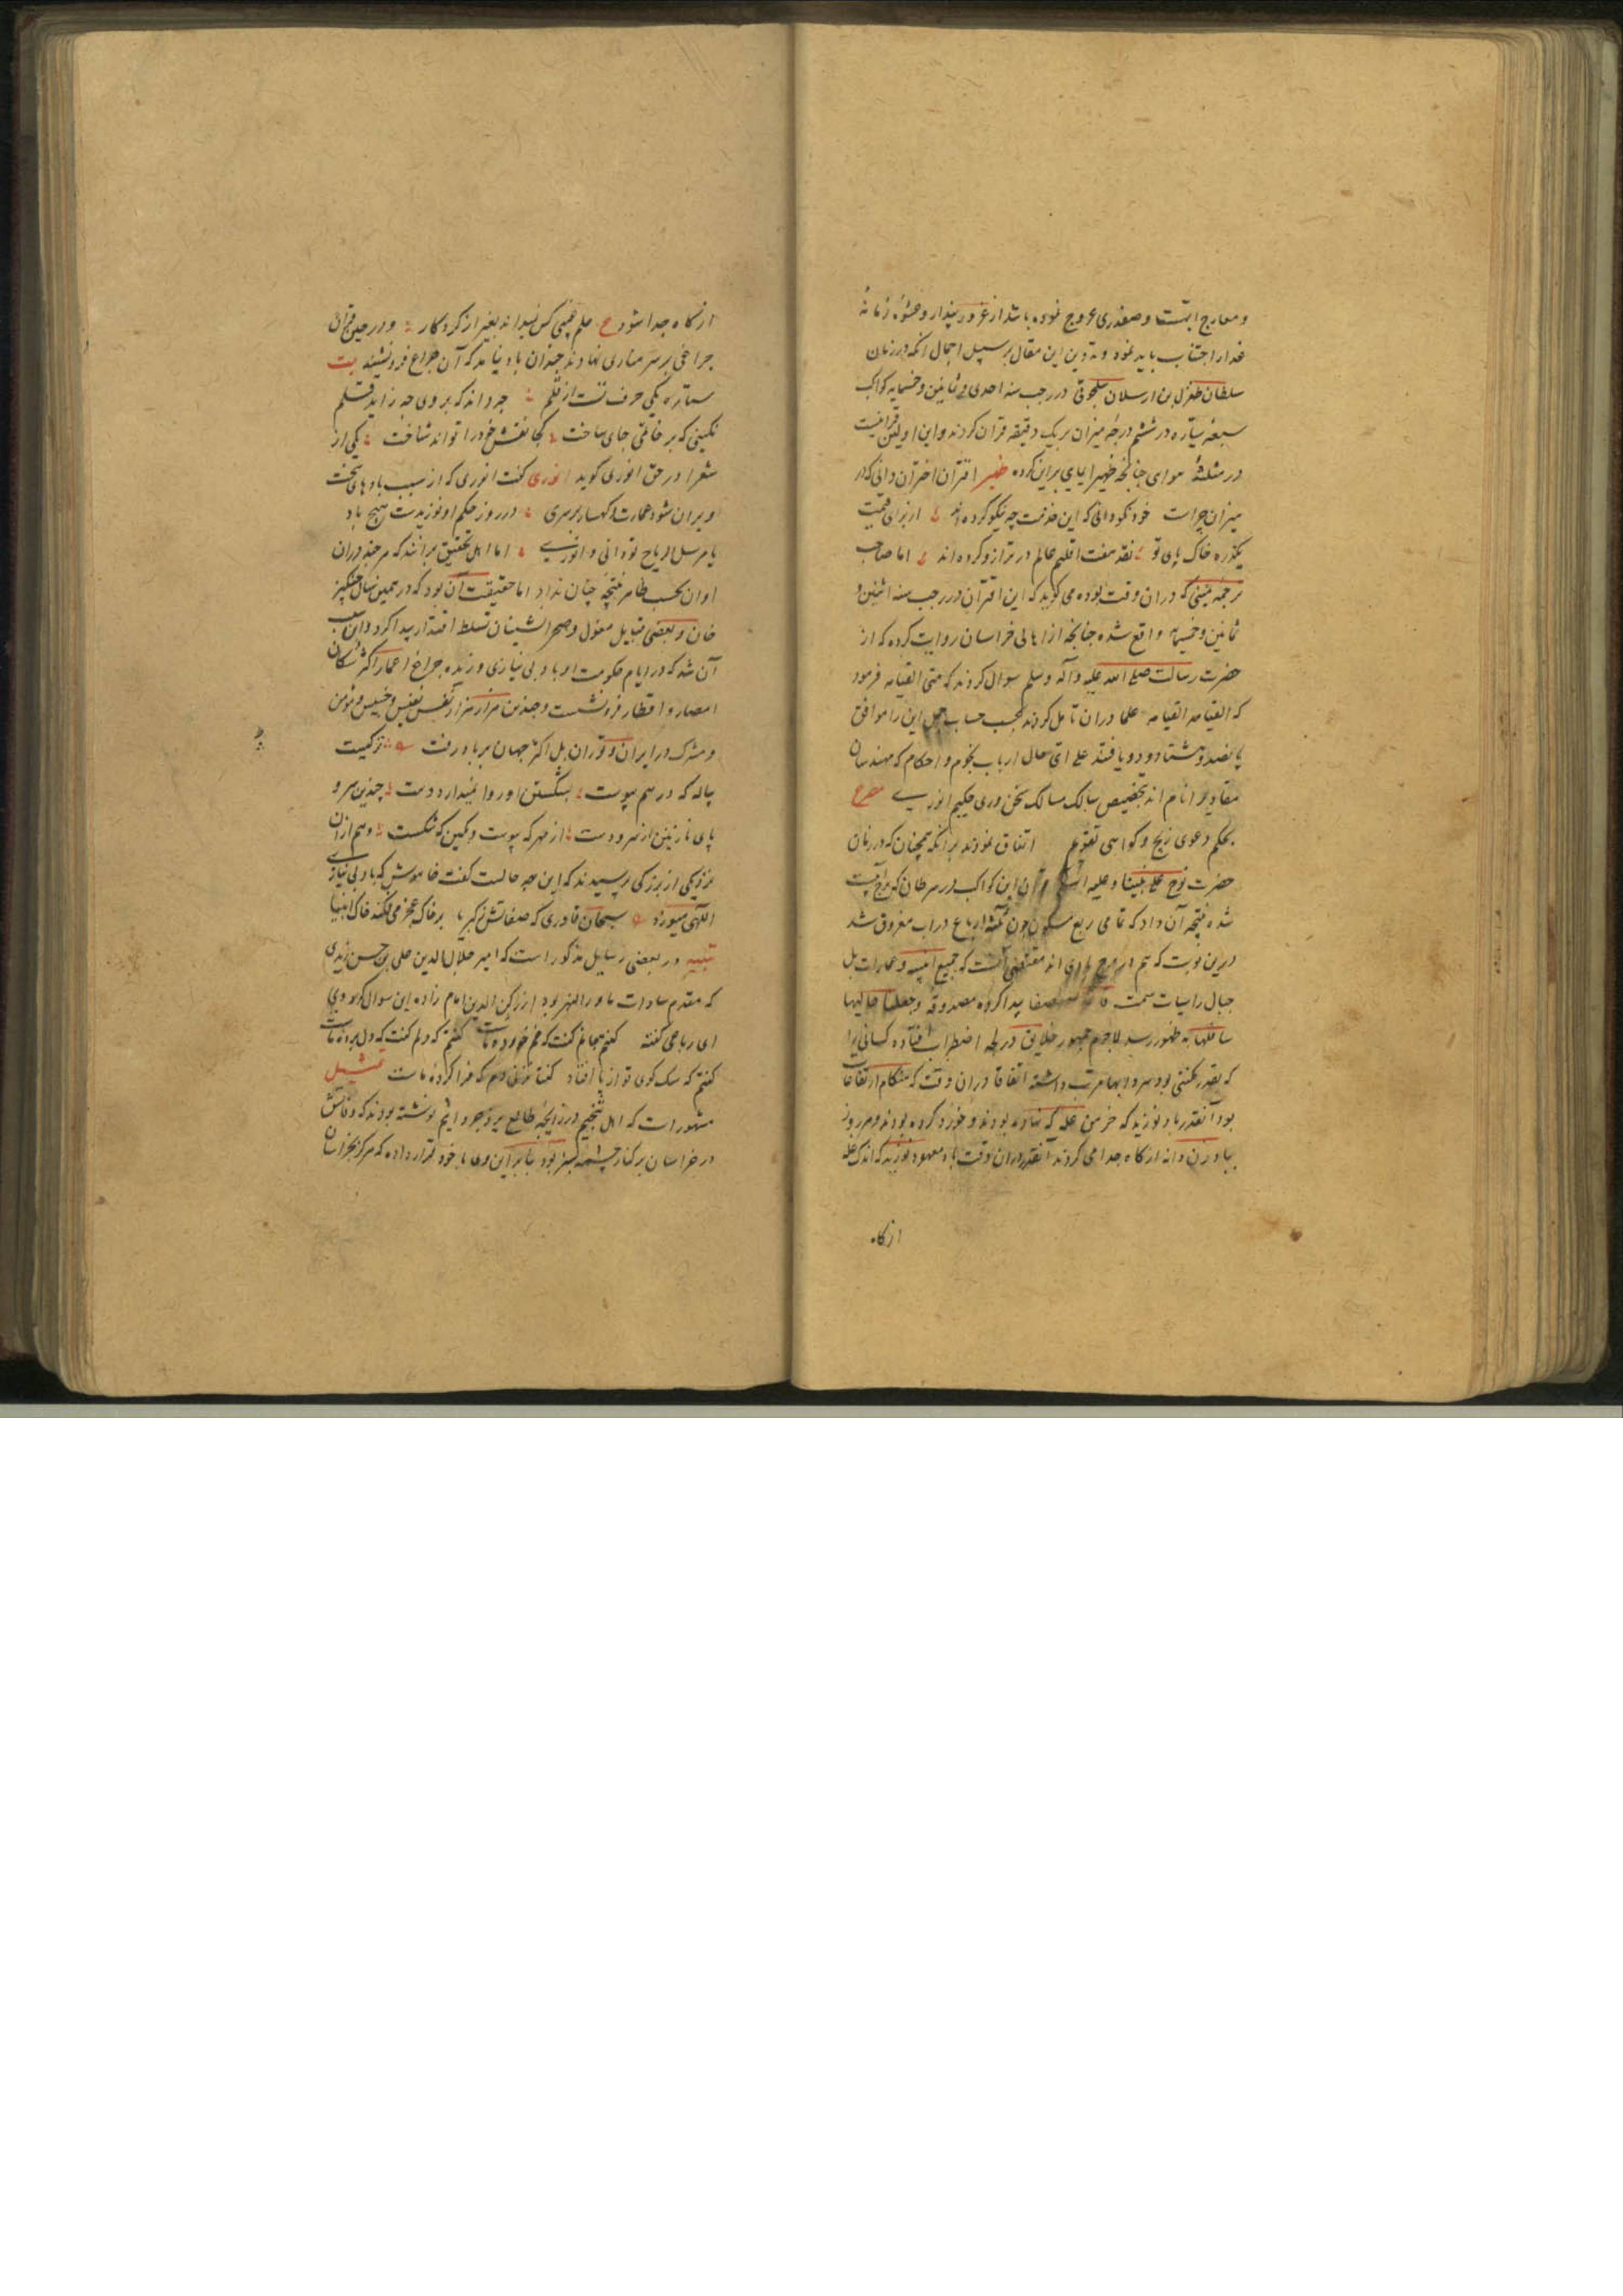 و معارج ابهت و صفدری عروج نموده باشد از غرور پندار و عشوه زمانه
غدار اجتناب باید نمود و تدوین این مقال بر سبیل اجمال انکه در زمان
سلطان طغرل بن ارسلان سلجوقی در رجب سنه احدی و ثمانین و خمسمایه کواکب
سبعه سیاره در ششم درجه میزان بریک دقیقه قران کردند و این اولین قرانیست
در مثلثه هوایی چنانکه ظهیر ایمایی برین کرده ظهیر اقتران اختران دانی که در
میزان چراست خود نکو دانی که این خدمت چه نیکو کرده اند از برای قیمت
یکذره خاک پای تو نقد هفت اقلیم عالم در ترازو کرده اند اما صاحب
ترجمه یمینی که دران وقت بوده می کوید که این اقتران در رجب سنه اثنین و
ثمانین و خمسمایه واقع شده چنانچه از اهالی خراسان روایت کرده که از
حضرت رسالت صلی الله علیه و آله و سلم سوال کردند که متی القیامه فرمود
که القیامه القیامه علما دران تامل کردند بحسب حساب جمل این را موافق
پانصد و هشتاد و دو یافتند علی ای حال ارباب نجوم و احکام که مهندسان
مقادیر اند بتخصیص سالک مسالک سخن وری حکیم انوری مصرع
بحکم دعوی زیج و کواهی تقویم اتفاق نمودند برانکه همچنان که در زمان
حضرت نوح علی نبینا و علیه السلام قران این کواکب در سرطان که برج آبیست
شده نتیجه آن داد که تمامی ربع مسکون چون ثلثه ارباع در اب مغروق شد
درین نوبت که هم در برج هوای اند مقتضی آنست که جمیع ابنیه و عمارات بل
جبال راسیات سمت قاعا صفصفا پیدا کرده مصدوقه و جعلنا عالیها
سافلها به ظهور رسد لاجرم جمهور خلایق در لجه اضطراب افتاده کسانی را
که بقدر مکنتی بود سردابها مرتب داشته اتفاقا دران وقت که هنکام ارتفاعات
بود آنقدر باد نوزید که خرمن غله که نهاده بودند و خورد کرده بودند و هر روز
بباد زن دانه از کاه جدا می کردند آنقدر دران وقت باد معهود نوزید که اندک غله
از کاه
از کاه جدا شود ع علم غیبی کس نمیداند بغیر از کردکار و در حین قران
چراغی بر سر مناری نهادند چندان باد نیامد که آن چراغ فرو نشیند بیت
ستاره یکی حرف تست از قلم چه داند که بر وی چه زاید قلم
نکینی که بر خاتمی جای ساخت کجا نقش خود را تواند شناخت یکی از
شعرا در حق انوری کوید انوری کفت انوری که از سبب بادهای سخت
ویران شود عمارت و کهسار بر سری در روز حکم او نوزیدست هیچ باد
یا مرسل الریاح تو دانی و انوری اما اهل تحقیق برانند که هر چند دران
اوان بحسب ظاهر نتیجه چنان نداد اما حقیقت آن بود که در همین سال چنکیز
خان و بعضی قبایل مغول و صحرانشینان تسلط اقتدار پیدا کرد و آن سبب
آن شد که در ایام حکومت او باد بی نیازی وزیده چراغ اعمار اکثر سکان
امصار و اقطار فرو نشست و چندین هزار هزار نفس نفیس و خسیس و مومن
و مشرک در ایران و توران بل اکثر جهان بر باد رفت ترکیب
پیاله که در هم پیوست بشکستن او روا نمیدارد دست چندین سر و
پای نازنین از سر و دست از مهر که پیوست و بکین که شکست و هم ازان
عزیزیکی از بزرکی پرسیدند که این چه حالست کفت خاموش که باد بی نیازی
الهی میوزد سبحان قادری که صفاتش ز کبریا بر خاک عجز می فکند خاک انبیا
تنبیه در بعضی رسایل مذکور است که امیر جلال الدین علی بن حسن زیدی
که مقدم سادات ماورالنهر بود از رکن الدین امام زاده این سوال کرد و وی
این رباعی کفته
کفتم که سک کوی تو از پا افتاد تمثیل
مشهور است که اهل تنجیم در زایجه طالع یزدجرد اثیم نوشته بودند که وفاتش
در خراسان بر کنار چشمه سبز بود بنابراین وی با خود قرار داده که هرکز بخراسان